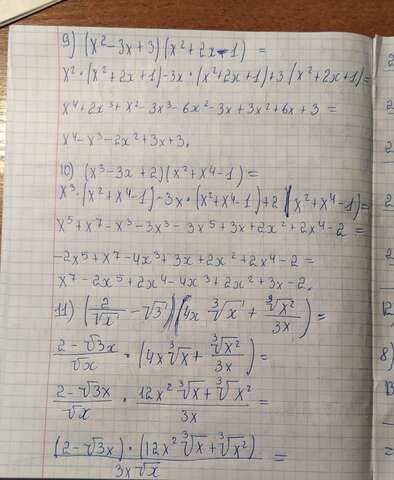 9) (x²-3x+3)(x²+2x-1) =
x²·(x²+2x+1)-3x·(x²+2x+1)+3(x²+2x+1)=
x⁴+2x³+x²-3x³-6x²-3x+3x²+6x+3=
x⁴-x³-2x²+3x+3.
10) (x³-3x+2)(x²+x⁴-1)=
x³·(x²+x⁴-1)-3x·(x²+x⁴-1)+2(x²+x⁴-1)=
x⁵+x⁷-x³-3x³-3x⁵+3x+2x²+2x⁴-2=
-2x⁵+x⁷-4x³+3x+2x²+2x⁴-2=
x⁷-2x⁵+2x⁴-4x³+2x²+3x-2.
11) (2/√x - √3)(4x ∛x + ∛x²/3x) =
2-√3x/√x · (4x∛x + ∛x²/3x) =
2-√3x/√x · 12x²∛x+∛x²/3x =
(2-√3x)·(12x²∛x+∛x²)/3x√x =
2
2
2
2
2
12
8)